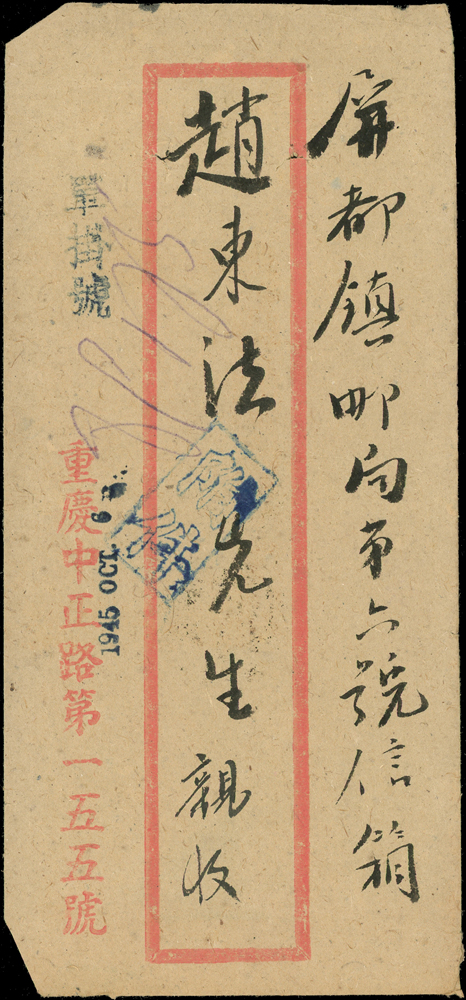 屏都鎮邮局第六號信箱
趙東法先生親收
單掛號
1945 OCT 6
重慶中正路第一五五號